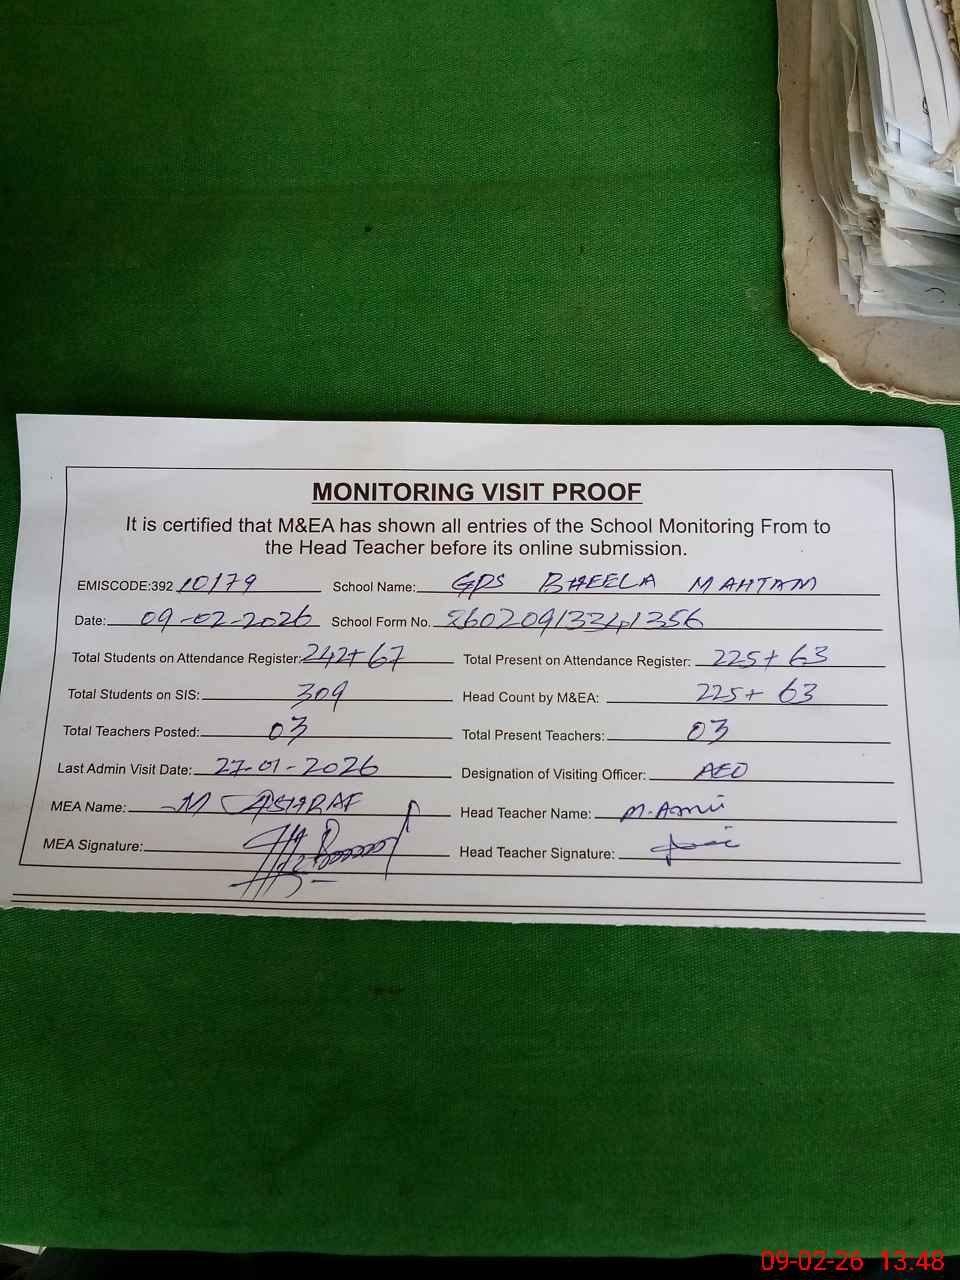 MONITORING VISIT PROOF
It is certified that M&EA has shown all entries of the School Monitoring From to
the Head Teacher before its online submission.
EMISCODE:392 10179 School Name: GPS BHEELA MAHTAM
Date: 09-02-2026 School Form No. 26020913341356
Total Students on Attendance Register: 242+67 Total Present on Attendance Register: 225+63
Total Students on SIS: 309 Head Count by M&EA: 225+63
Total Teachers Posted: 03 Total Present Teachers: 03
Last Admin Visit Date: 27-01-2026 Designation of Visiting Officer: AEO
MEA Name: M ASHRAF Head Teacher Name: M.
MEA Signature: Head Teacher Signature:
09-02-26 13:48